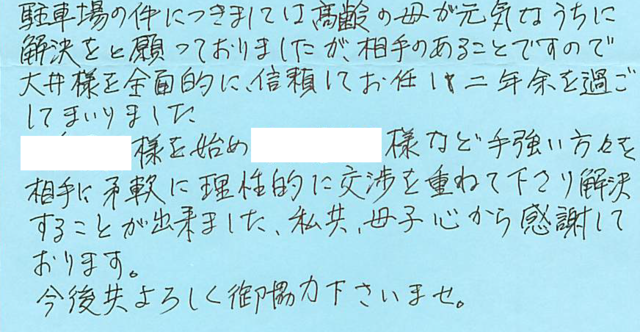 駐車場の件につきましては高齢の母が元気なうちに
解決をと願っておりましたが、相手のあることですので
大井様を全面的に、信頼してお任せ二年余を過ご
してまいりました
様を始め 様など手強い方々を
相手に柔軟に理性的に交渉を重ねて下さり解決
することが出来ました、私共、母子心から感謝して
おります。
今後共よろしく御協力下さいませ。